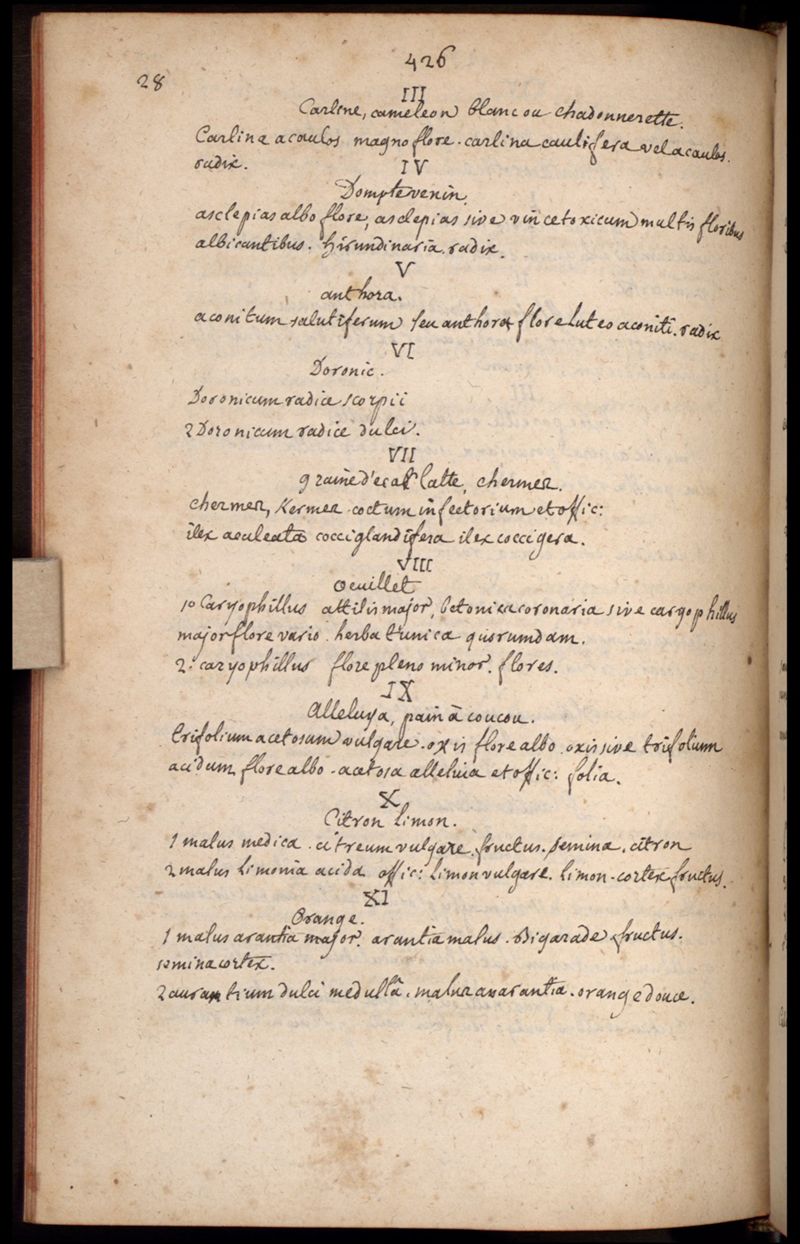 426
28
III
Carline, cameleon blanc ou chadonnerette.
Carlina acaulos magno flore. carlina caulifera vel acaulos.
radix.
IV
Domptevenin.
asclepias albo flore, asclepias sive vincetoxicum multis floribus
albicantibus. hirundinaria. radix.
V
anthora.
aconitum salutiferum seu anthora flore luteo aconiti. radix
VI
Doronic.
Doronicum radice scorpii
2 Doronicum radice dulci.
VII
graine d'ecarlatte, chermez.
chermez, Kermez. coctum infectorium et offic:
ilex aculeata cocciglandifera ilex coccigera.
VIII
oeuillet
1o Caryophillus altilis major, betonica coronaria sive caryophillus
major flore vario. herba tunica quorumdam.
2o caryophillus flore pleno minor. flores.
IX
Alleluya, pain à coucou.
trifolium acetosum vulgare. oxis flore albo. oxis sive trifolium
acidum flore albo. acetosa alleluia et offic: folia.
X
Citron limon.
1 malus medica. citreum vulgare. fructus. semina. citron
2 malus limonia acida offic: limon vulgare. limon. cortex fructus.
XI
Orange.
1 malus arantia major. arantia malus. Bigarade fructus.
semina cortex.
2 aurantium dulci medullâ. malus arantia. orange douce.